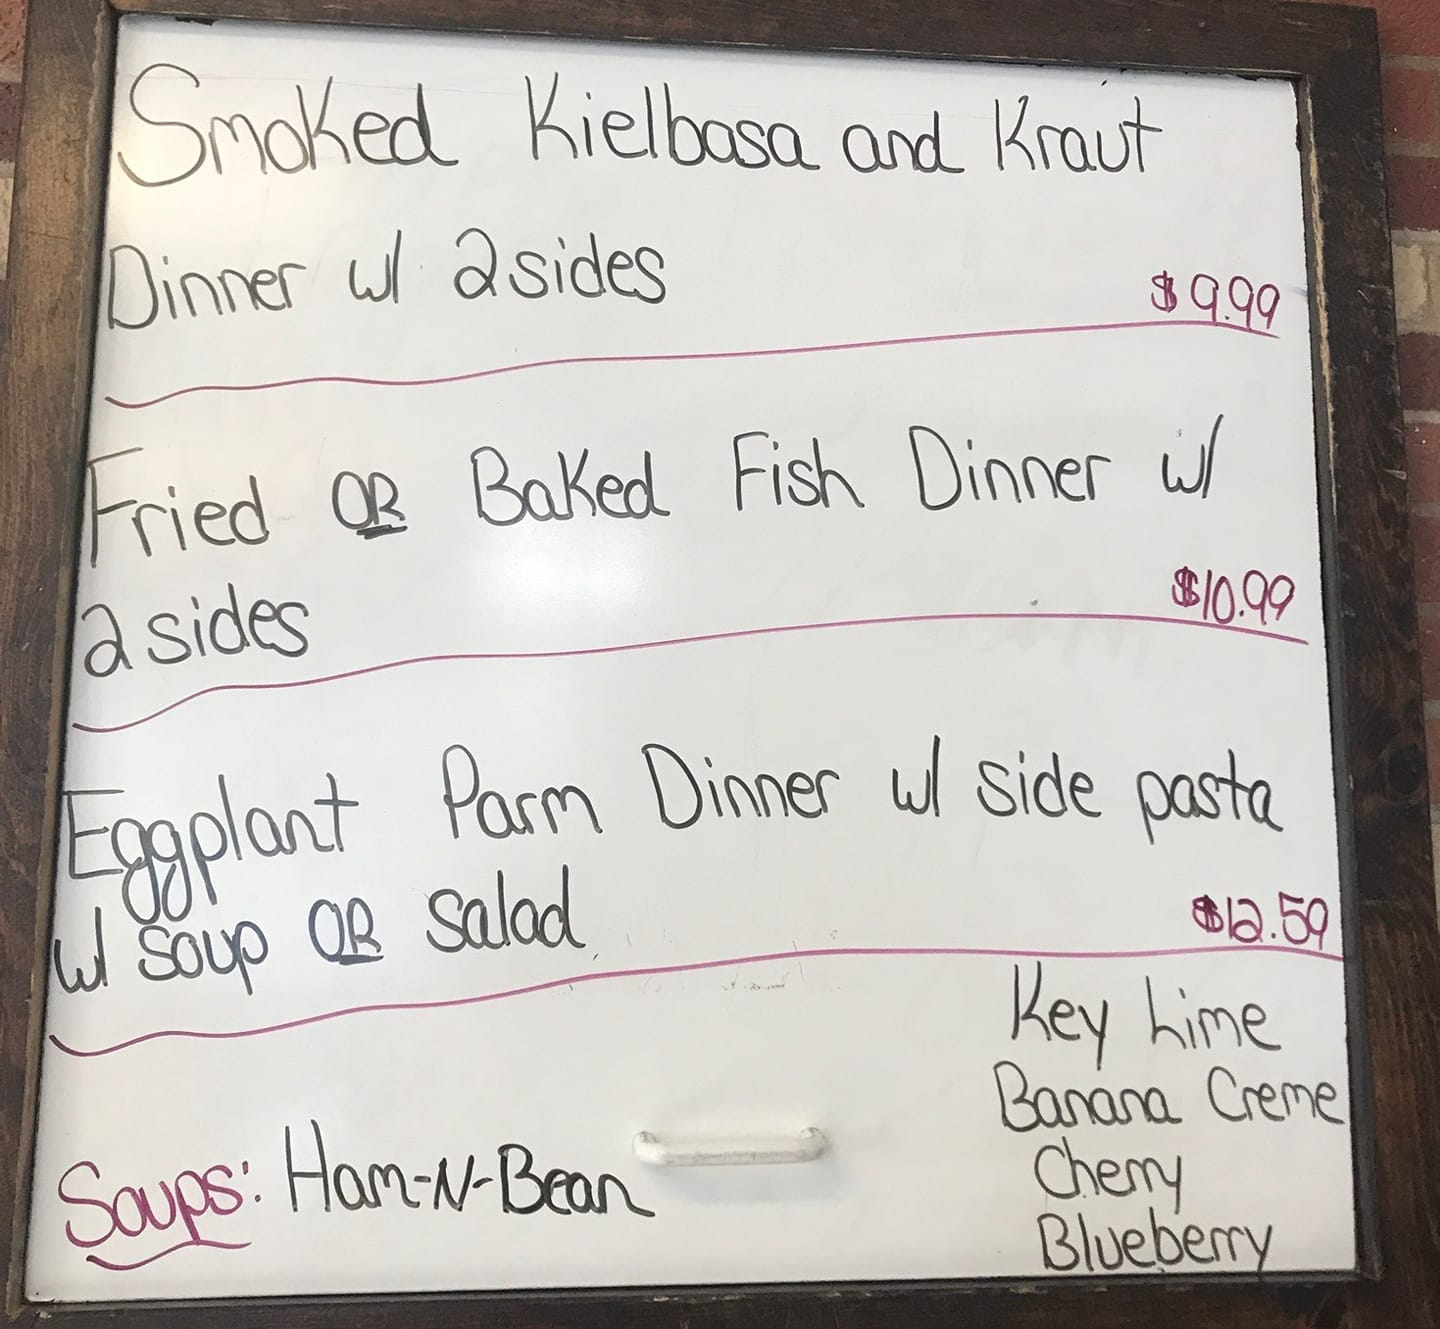 Smoked Kielbasa and Kraut
Dinner w/ 2 sides
$9.99
Fried OR Baked Fish Dinner w/
2 sides
$10.99
Eggplant Parm Dinner w/ side pasta
w/ soup OR salad
$12.59
Soups: Ham-N-Bean
Key Lime
Banana Creme
Cherry
Blueberry